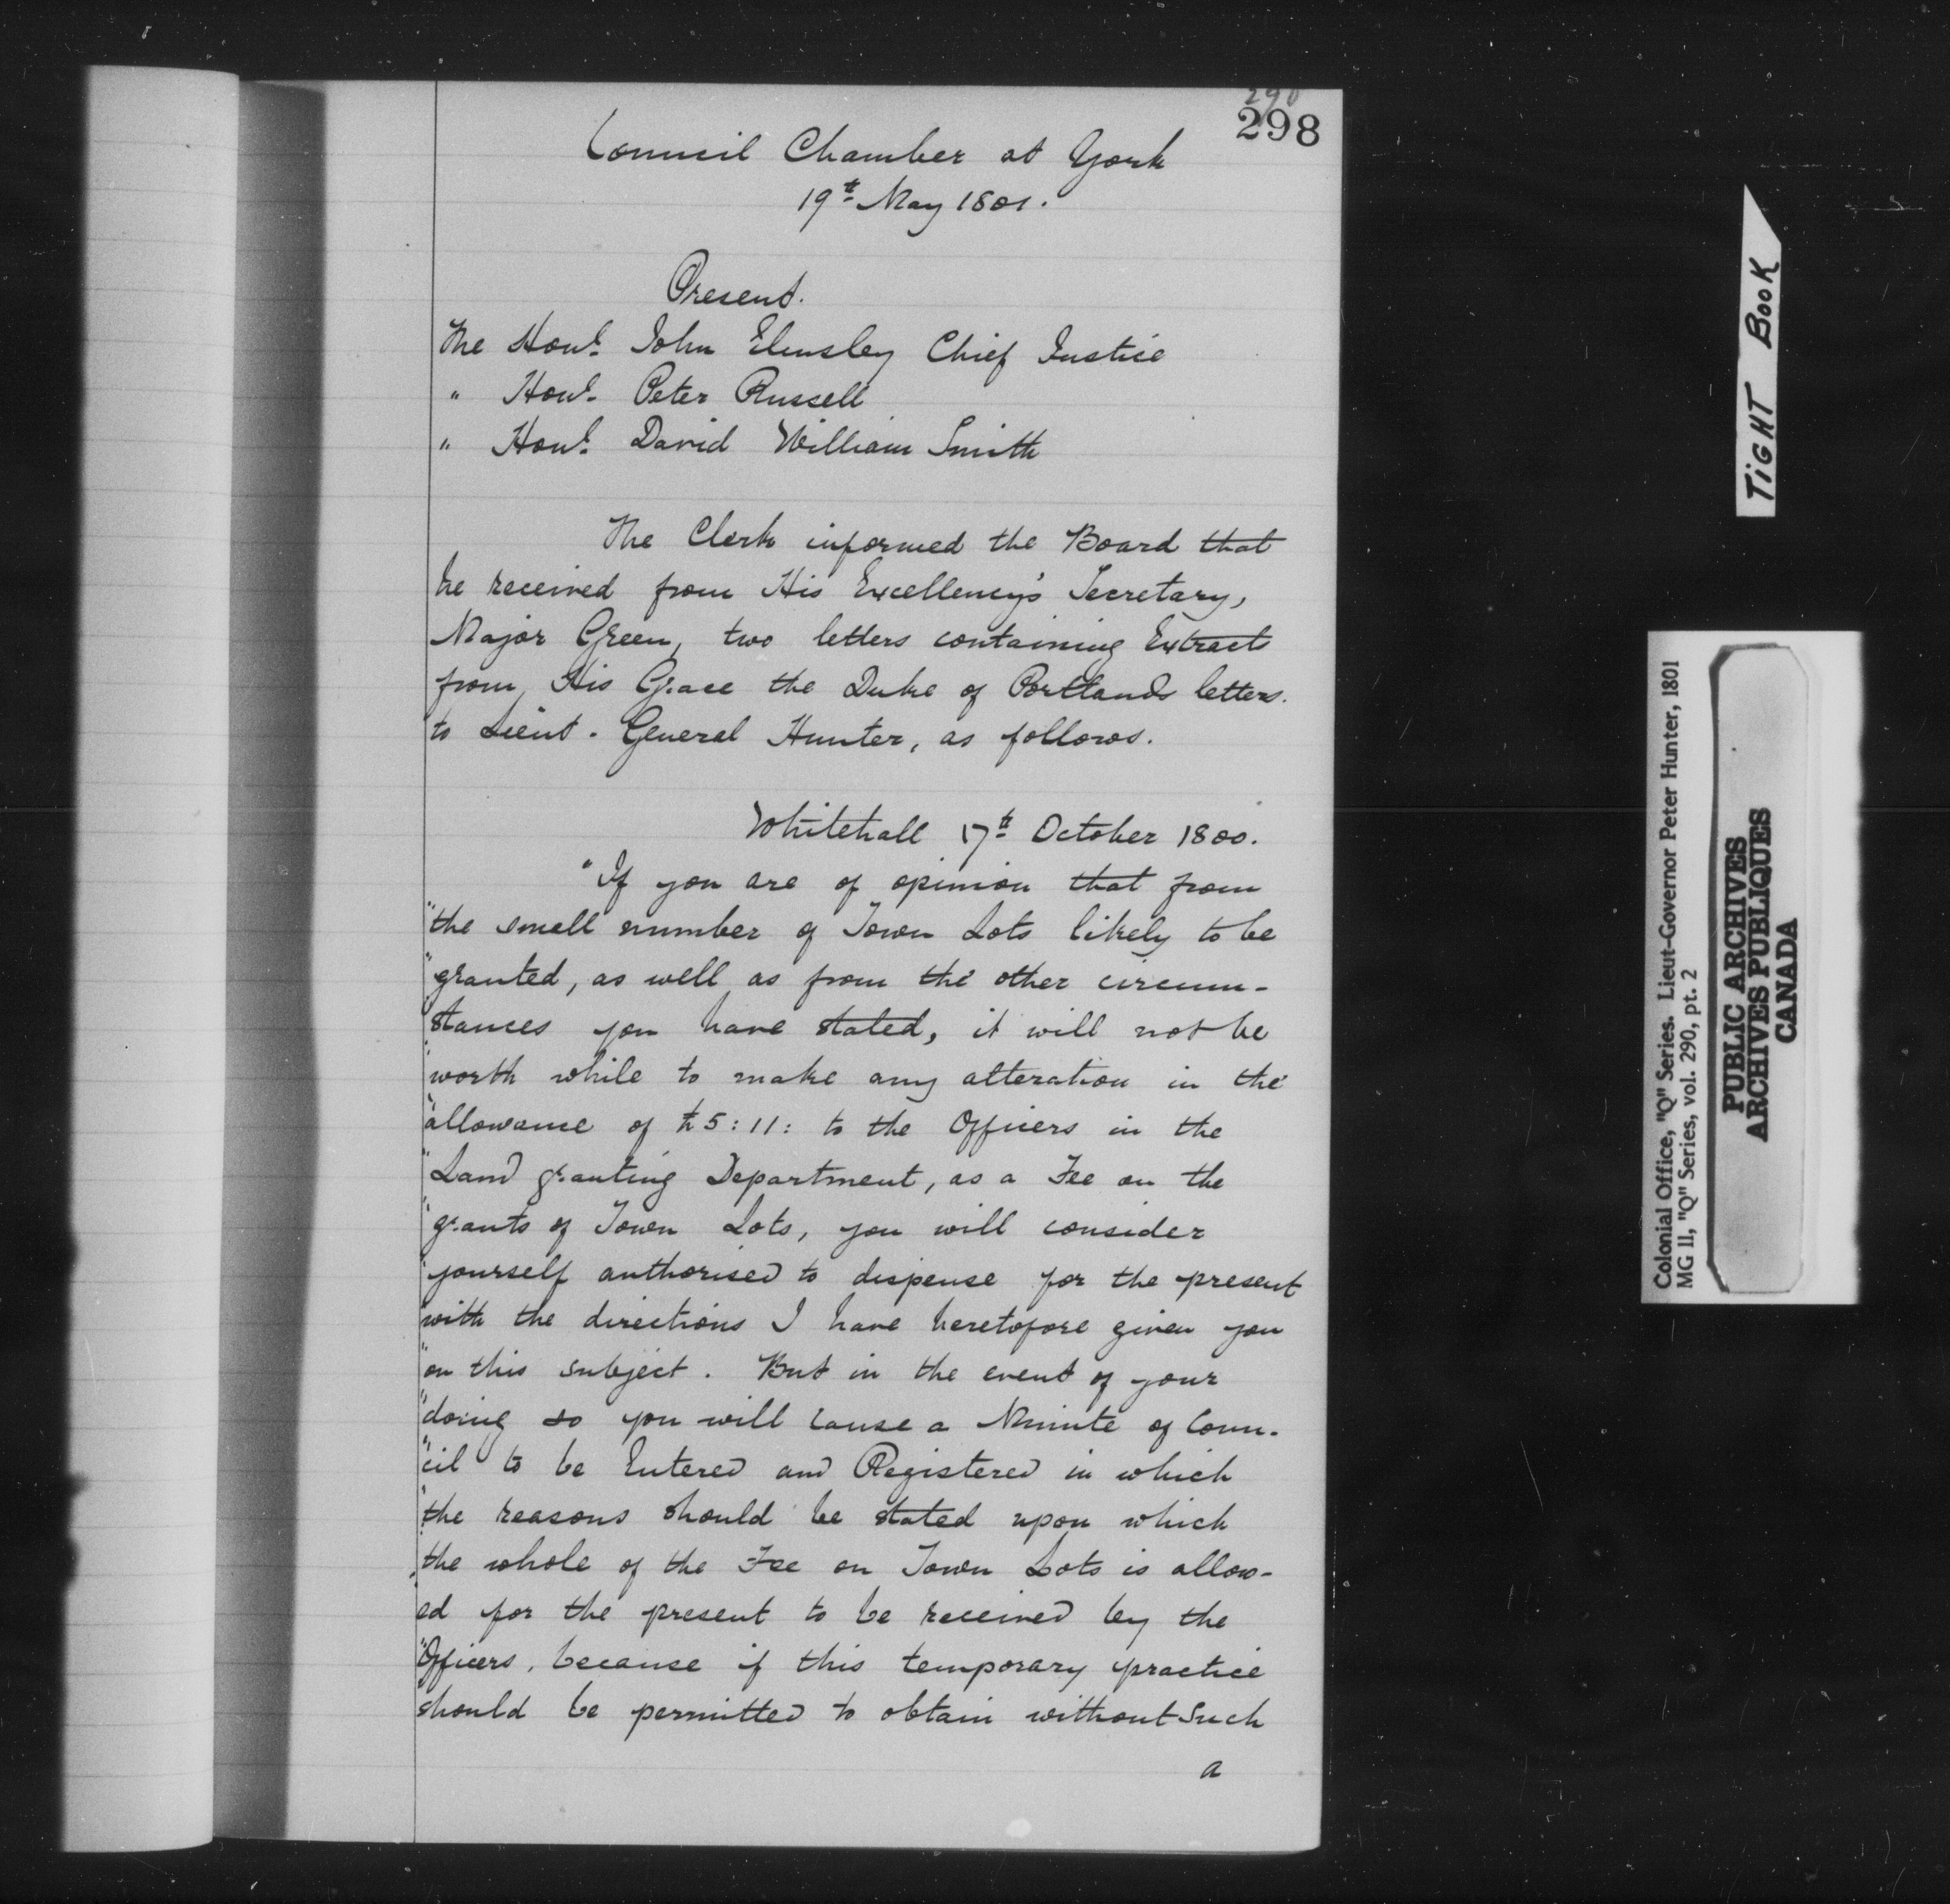 290
298
Council Chamber at York
19th May 1801.
Present.
The Honl. John Elmsley Chief Justice
" Honl. Peter Russell
" Honl. David William Smith
The Clerk informed the Board that
he received from His Excellency's Secretary,
Major Green, two letters containing Extracts
from His Grace the Duke of Portlands letters.
to Lieut. General Hunter, as follows.
Whitehall 17th October 1800.
"If you are of opinion that from
"the small number of Town Lots likely to be
"granted, as well as from the other circum-
"stances you have stated, it will not be
"worth while to make any alteration in the
"allowance of £5:11: to the Officers in the
"Land granting Department, as a Fee on the
"grants of Town Lots, you will consider
"yourself authorised to dispense for the present
"with the directions I have heretofore given you
"on this subject. But in the event of your
"doing so you will cause a Minute of Coun-
"cil to be Entered and Registered in which
"the reasons should be stated upon which
"the whole of the Fee on Town Lots is allow-
ed for the present to be received by the
"Officers, because if this temporary practice
should be permitted to obtain without such
a
TIGHT BOOK
Colonial Office, "Q" Series. Lieut-Governor Peter Hunter, 1801
MG 11, "Q" Series, vol. 290, pt. 2
PUBLIC ARCHIVES
ARCHIVES PUBLIQUES
CANADA